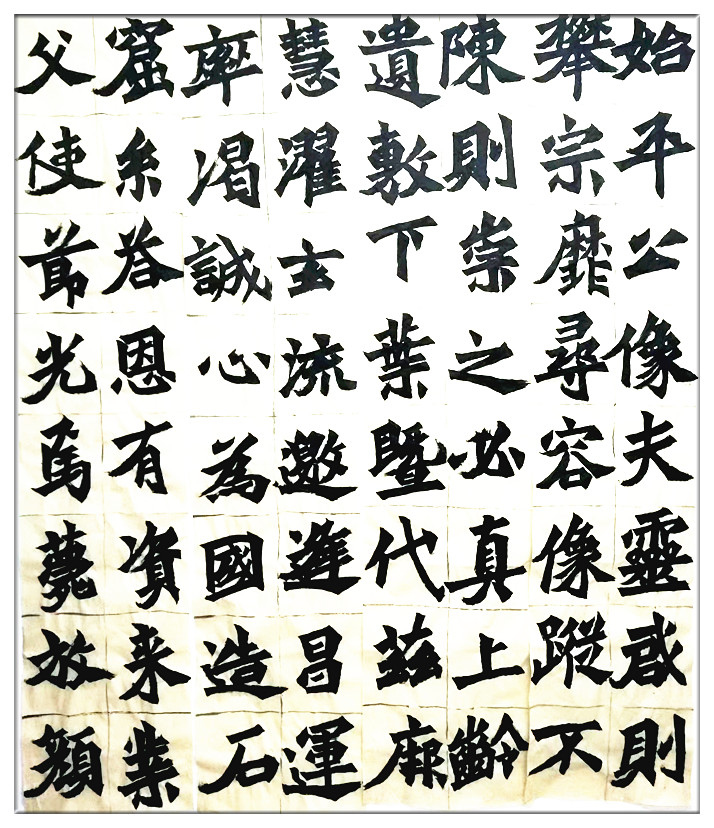 始平公像夫靈啟則
攀宗靡尋容像蹤不
陳則崇之必真上齡
遺敷下葉暨代茲厥
慧濯玄流邀逢昌運
率渴誠心為國造石
窟系答恩有資来業
父使節光焉薨放顏